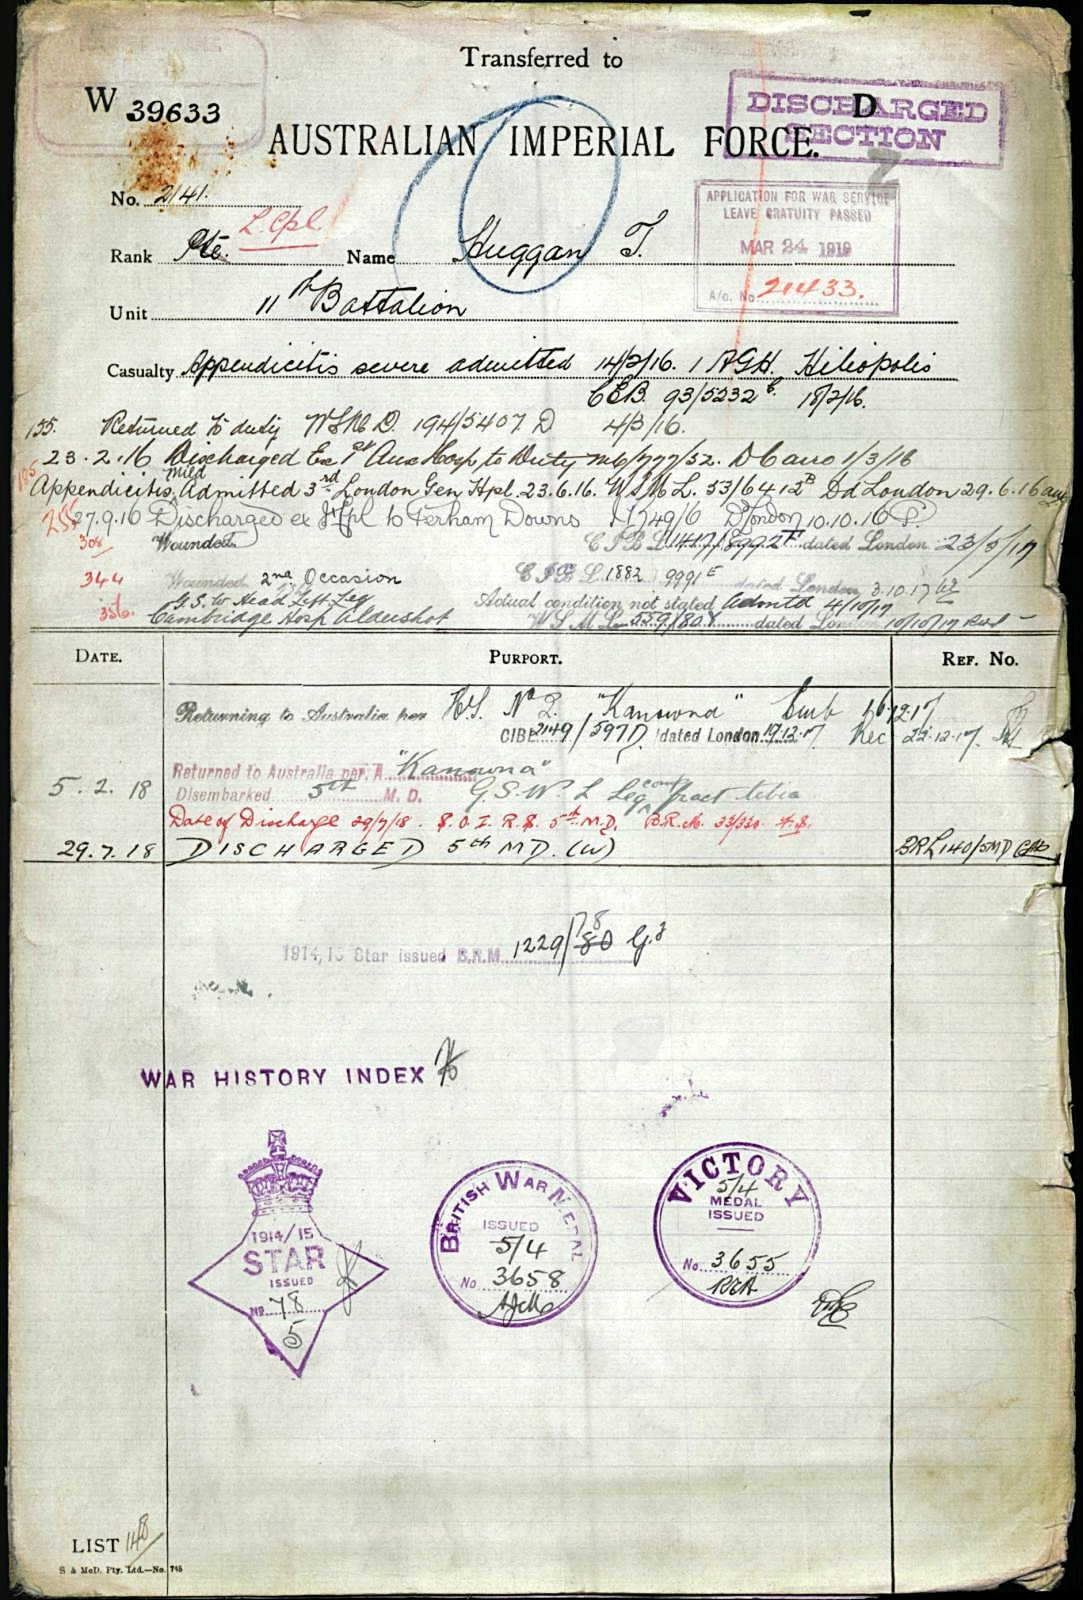 Transferred to
W 39633
D
DISCHARGED
SECTION
AUSTRALIAN IMPERIAL FORCE.
No. 2141.
L. Cpl
Rank Pte. Name Huggan T.
Unit 11th Battalion
APPLICATION FOR WAR SERVICE
LEAVE GRATUITY PASSED
MAR 24 1919
A/c. No. 21433.
Casualty Appendicitis severe admitted 14/2/16. 1 AGH. Heliopolis
CEB. 93/5232 18/2/16.
155. Returned to duty 194/5407 D 4/3/16.
23.2.16 Discharged Ex 1st Aux Hosp to Duty D Cairo 1/3/16
Appendicitis, mild Admitted 3rd London Gen Hpl. 23.6.16. WSML. 53/6412B Dd London 29.6.16
258 27.9.16 Discharged ex Hpl to Perham Downs D London 10.10.16
308 Wounded dated London 23/5/17
344 Wounded 2nd Occasion C I B L. 1882 9991E dated London 3.10.17
G.S.W Head Left Leg Actual condition not stated Admtd 4/10/17
356. Cambridge Hosp Aldershot W S M L 229/80 dated London 10/10/17
DATE. PURPORT. REF. No.
Returning to Australia per H.S. No 2. "Kanowna" Emb 16.12.17
CIBL 2149/597D. dated London 19.12.17 Rec 22.12.17.
Returned to Australia per. A "Kanowna"
5.2.18 Disembarked 5th M. D. G.S.W. L Leg comp fract tibia
Date of Discharge 29/7/18. 5th M.D.
29.7.18 DISCHARGED 5th MD. (W) BRL 140/5MD
1914,15 Star issued B.R.M. 1229/80 78
WAR HISTORY INDEX
1914/15
STAR
ISSUED
No 78
5
BRITISH WAR MEDAL
ISSUED
5/4
No. 3658
VICTORY
5/4
MEDAL
ISSUED
No. 3655
LIST 148
S & McD. Pty. Ltd.—No. 745